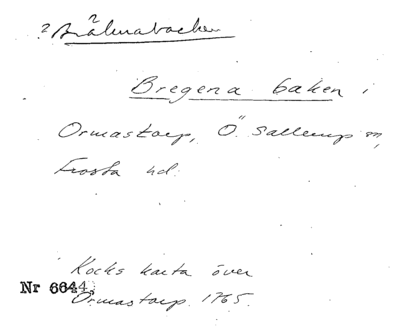 Bregena baken i
Ormastorp, Ö. Sallerup sn,
Frosta hd.
Kocks karta över
Nr 6644. Ormastorp 1765.